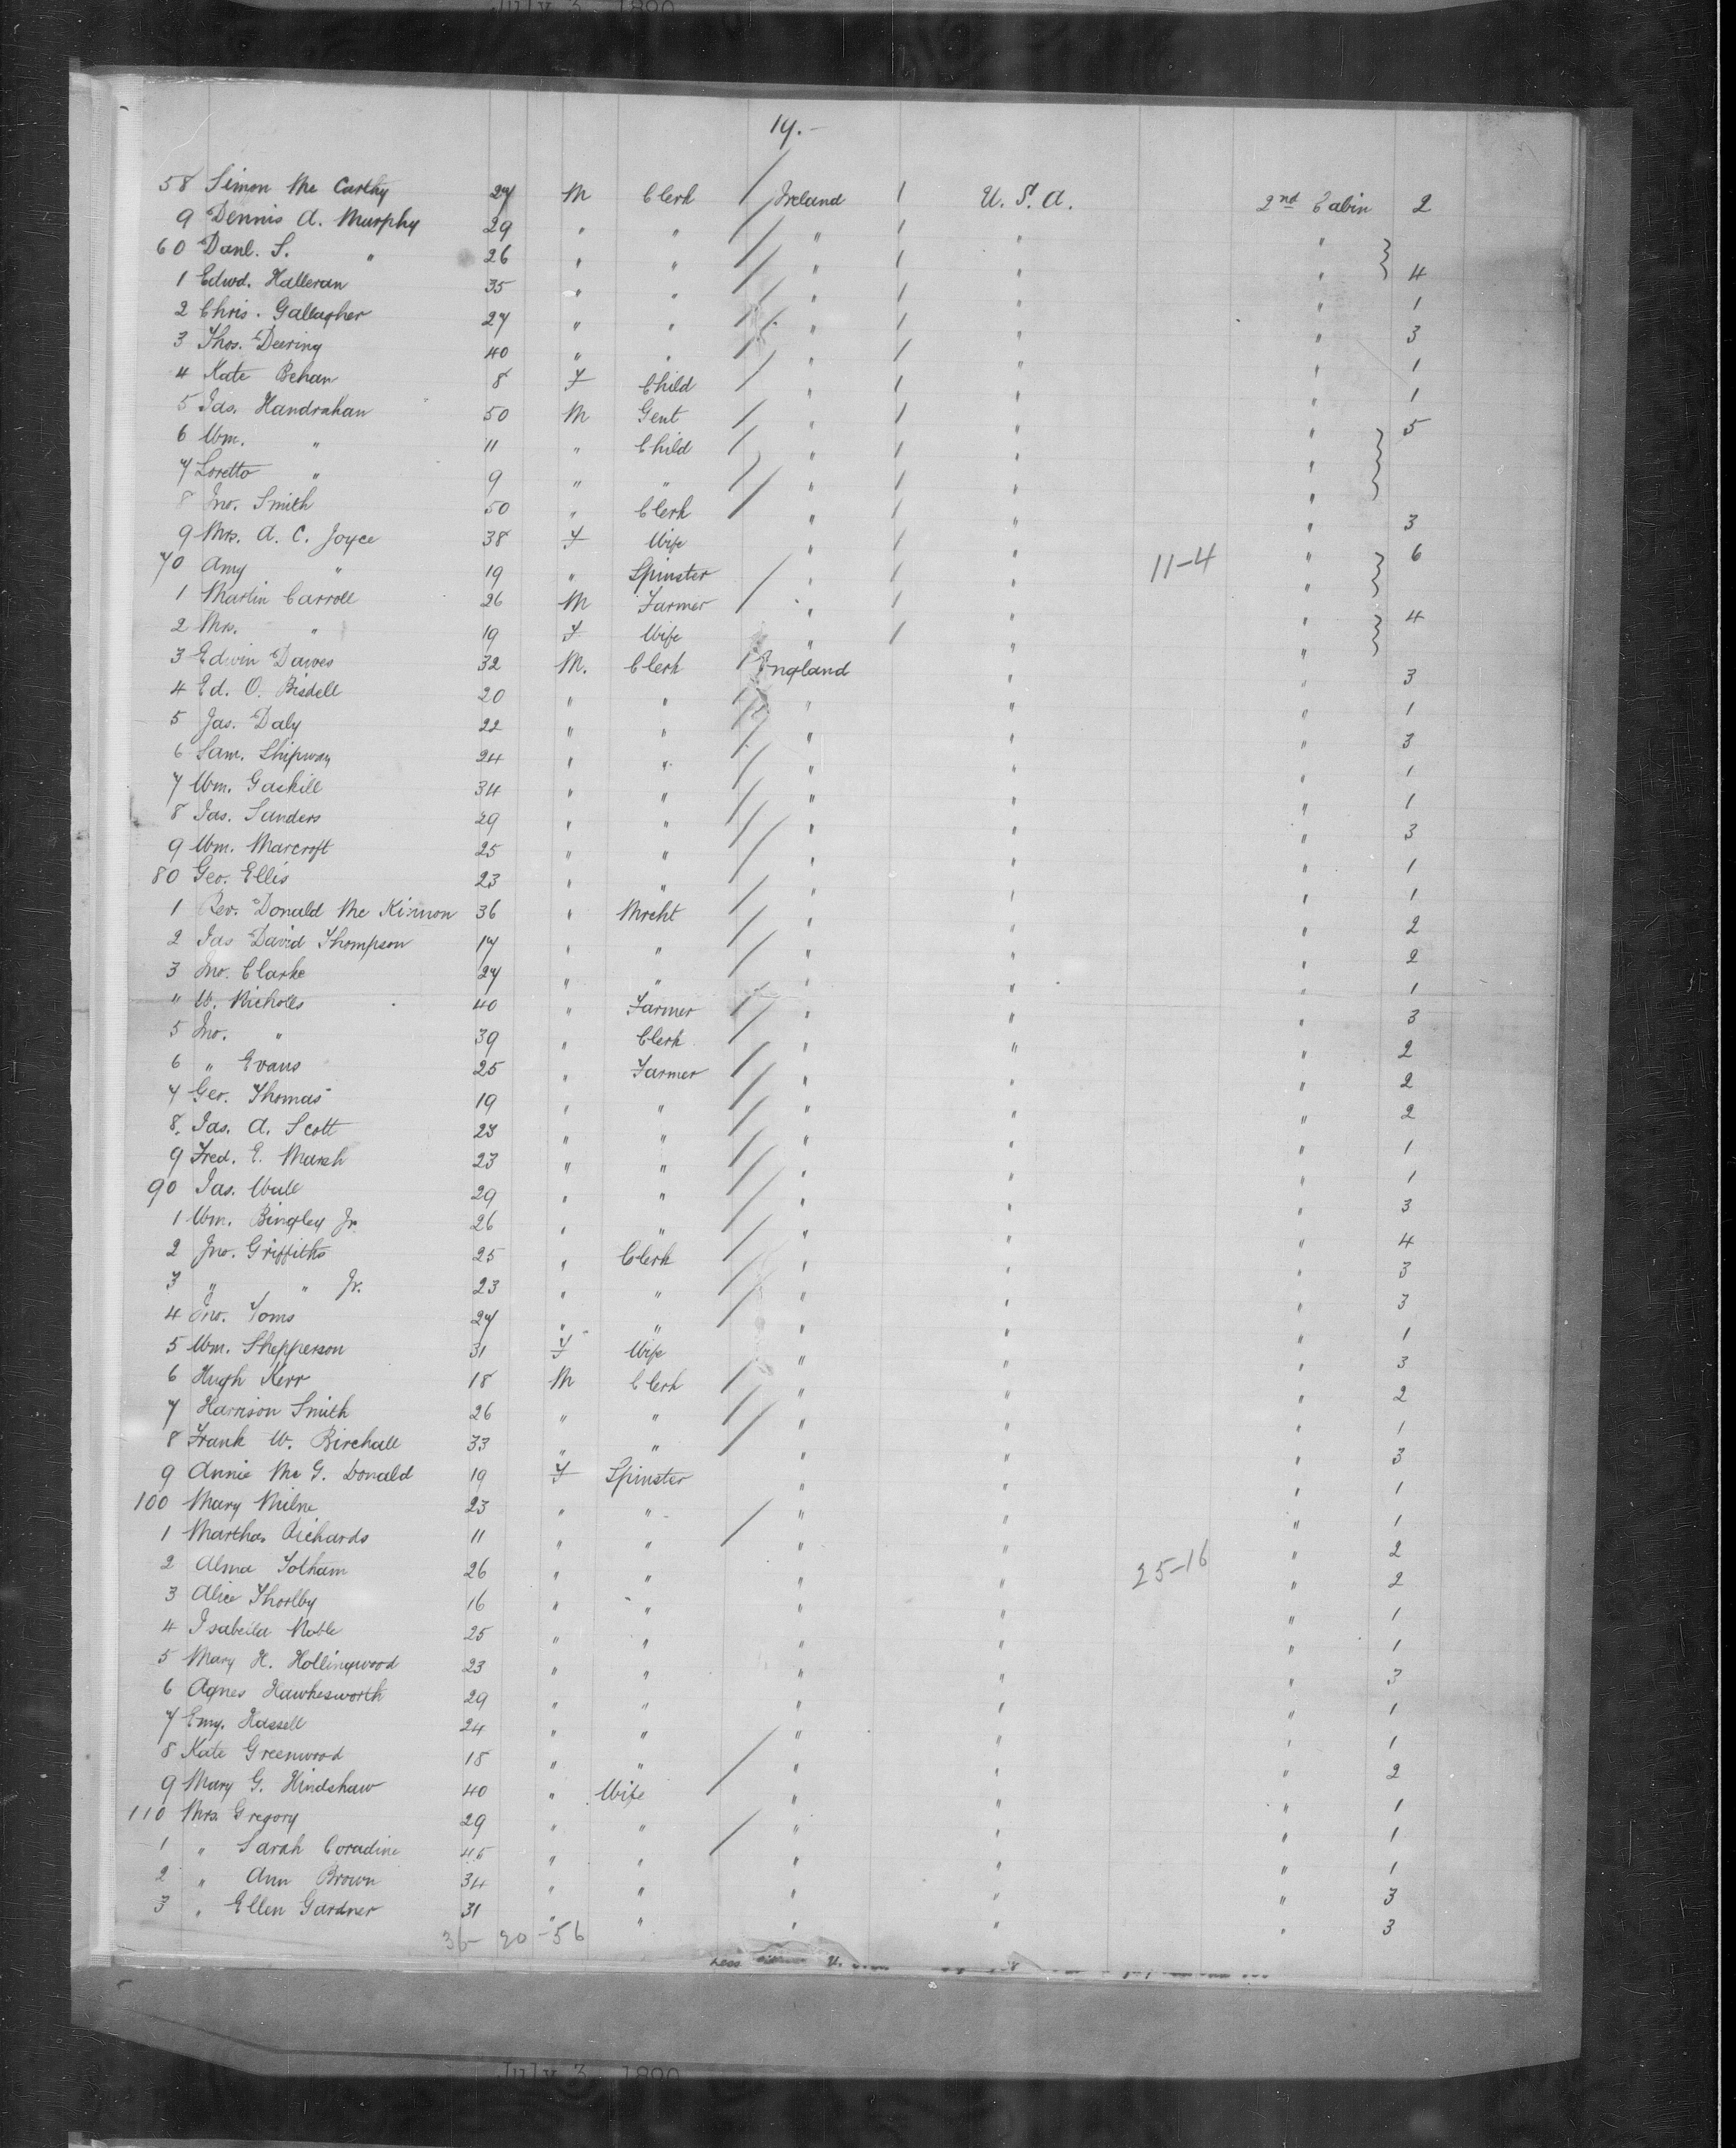 July 3, 1890
14.-
58 Simon Mc Carthy 27 M Clerk / Ireland / U. S. A. 2nd Cabin 2
9 Dennis A. Murphy 29 " " / " / " "
60 Danl. S. " 26 " " / " / " " } 4
1 Edwd. Halleran 35 " " / " / " " 1
2 Chris. Gallagher 27 " " / " / " " 3
3 Thos. Deering 40 " " / " / " " 1
4 Kate Behan 8 F Child / " / " " 1
5 Jas. Handrahan 50 M Gent / " / " " 5
6 Wm. " 11 " Child / " / " " }
7 Loretto " 9 " " / " / " "
8 Jno. Smith 50 " Clerk / " / " " 3
9 Mrs. A. C. Joyce 38 F Wife " / " 11-4 " 6
70 Amy " 19 " Spinster " / " " }
1 Martin Carroll 26 M Farmer / " / " " 4
2 Mrs. " 19 F Wife " / " " }
3 Edwin Dawes 32 M. Clerk / England " " 3
4 Ed. O. Bisdell 20 " " / " " " 1
5 Jas. Daly 22 " " / " " " 3
6 Sam. Shipway 24 " " / " " " 1
7 Wm. Gaskill 34 " " / " " " 1
8 Jas. Sanders 29 " " / " " " 3
9 Wm. Marcroft 25 " " / " " " 1
80 Geo. Ellis 23 " " / " " " 1
1 Rev. Donald Mc Kinnon 36 " Mrcht / " " " 2
2 Jas David Thompson 17 " " / " " " 2
3 Jno. Clarke 27 " " / " " " 1
" W. Nicholls 40 " Farmer / " " " 3
5 Jno. " 39 " Clerk / " " " 2
6 " Evans 25 " Farmer / " " " 2
7 Geo. Thomas 19 " " / " " " 2
8. Jas. A. Scott 23 " " / " " " 1
9 Fred. E. Marsh 23 " " / " " " 1
90 Jas. Wall 29 " " / " " " 3
1 Wm. Bingley Jr. 26 " " / " " " 4
2 Jno. Griffiths 25 " Clerk / " " " 3
3 " " Jr. 23 " " / " " " 3
4 Jno. Toms 27 " " / " " " 1
5 Wm. Shepperson 31 F Wife " " " 3
6 Hugh Kerr 18 M Clerk / " " " 2
7 Harrison Smith 26 " " / " " " 1
8 Frank W. Birchall 33 " " / " " " 3
9 Annie Mc G. Donald 19 F Spinster " " " 1
100 Mary Milne 23 " " " " " 1
1 Martha Richards 11 " " / " " " 2
2 Alma Totham 26 " " " " 25-16 " 2
3 Alice Thorlby 16 " " " " " 1
4 Isabella Noble 25 " " " " " 1
5 Mary H. Hollingwood 23 " " " " " 3
6 Agnes Hawkesworth 29 " " " " " 1
7 Emy. Hassell 24 " " " " " 1
8 Kate Greenwood 18 " " / " " " 2
9 Mary G. Hindshaw 40 " Wife " " " 1
110 Mrs. Gregory 29 " " / " " " 1
1 " Sarah Coradine 45 " " " " " 1
2 " Ann Brown 34 " " " " " 3
3 " Ellen Gardner 31 " " " " " 3
36- 20 -56
July 3, 1890